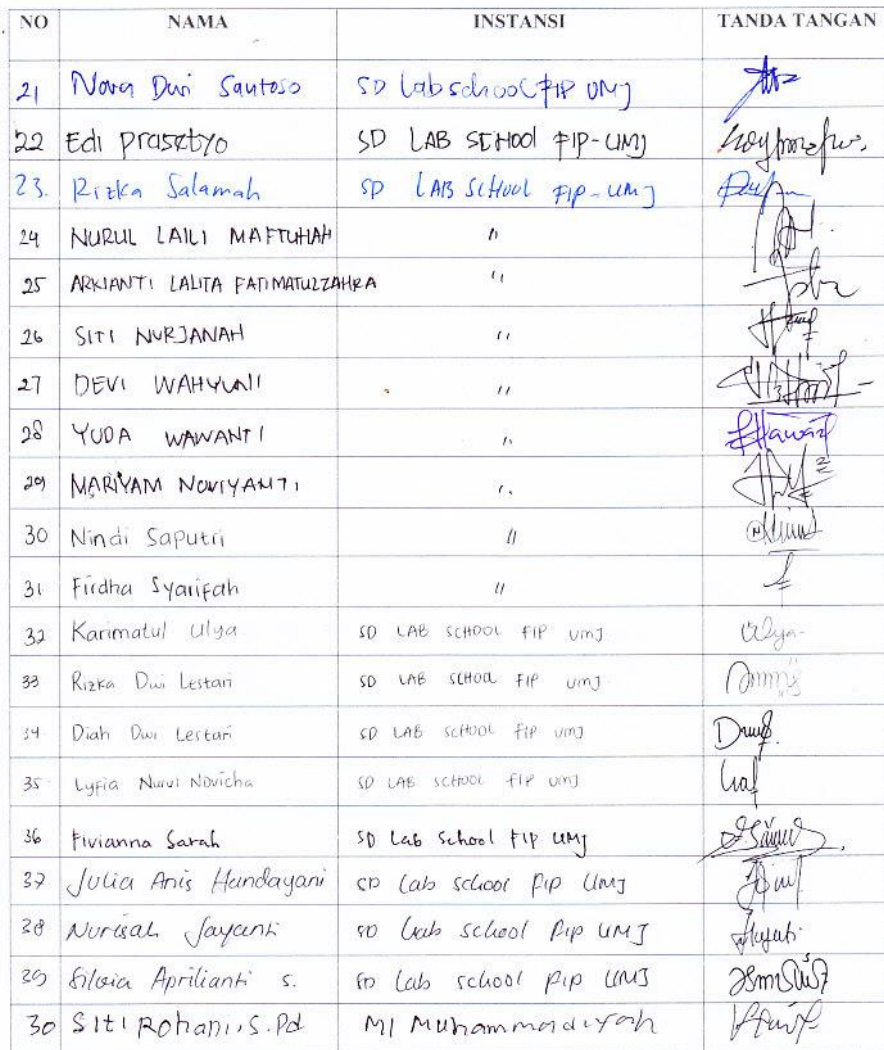 NO NAMA INSTANSI TANDA TANGAN
21 Nova Dwi Santoso SD Lab school FIP UMJ
22 Edi prasetyo SD LAB SCHOOL FIP-UMJ
23. Rizka Salamah SD LAB SCHOOL FIP-UMJ
24 NURUL LAILI MAFTUHAH "
25 ARKIANTI LALITA FATIMATUZZAHRA "
26 SITI NURJANAH "
27 DEVI WAHYUNI "
28 YUDA WAWANTI "
29 MARIYAM NOVIYANTI "
30 Nindi Saputri "
31 Firdha Syarifah "
32 Karimatul Ulya SD LAB SCHOOL FIP UMJ Ulya
33 Rizka Dwi Lestari SD LAB SCHOOL FIP UMJ
34 Diah Dwi Lestari SD LAB SCHOOL FIP UMJ
35 Lyfia Nurul Novicha SD LAB SCHOOL FIP UMJ
36 Fivianna Sarah SD Lab School FIP UMJ
37 Julia Anis Handayani SD Lab school FIP UMJ
38 Nurisah Jayanti SD Lab school FIP UMJ
39 Silvia Aprilianti S. SD Lab school FIP UMJ
30 Siti Rohani, S.Pd MI Muhammadiyah